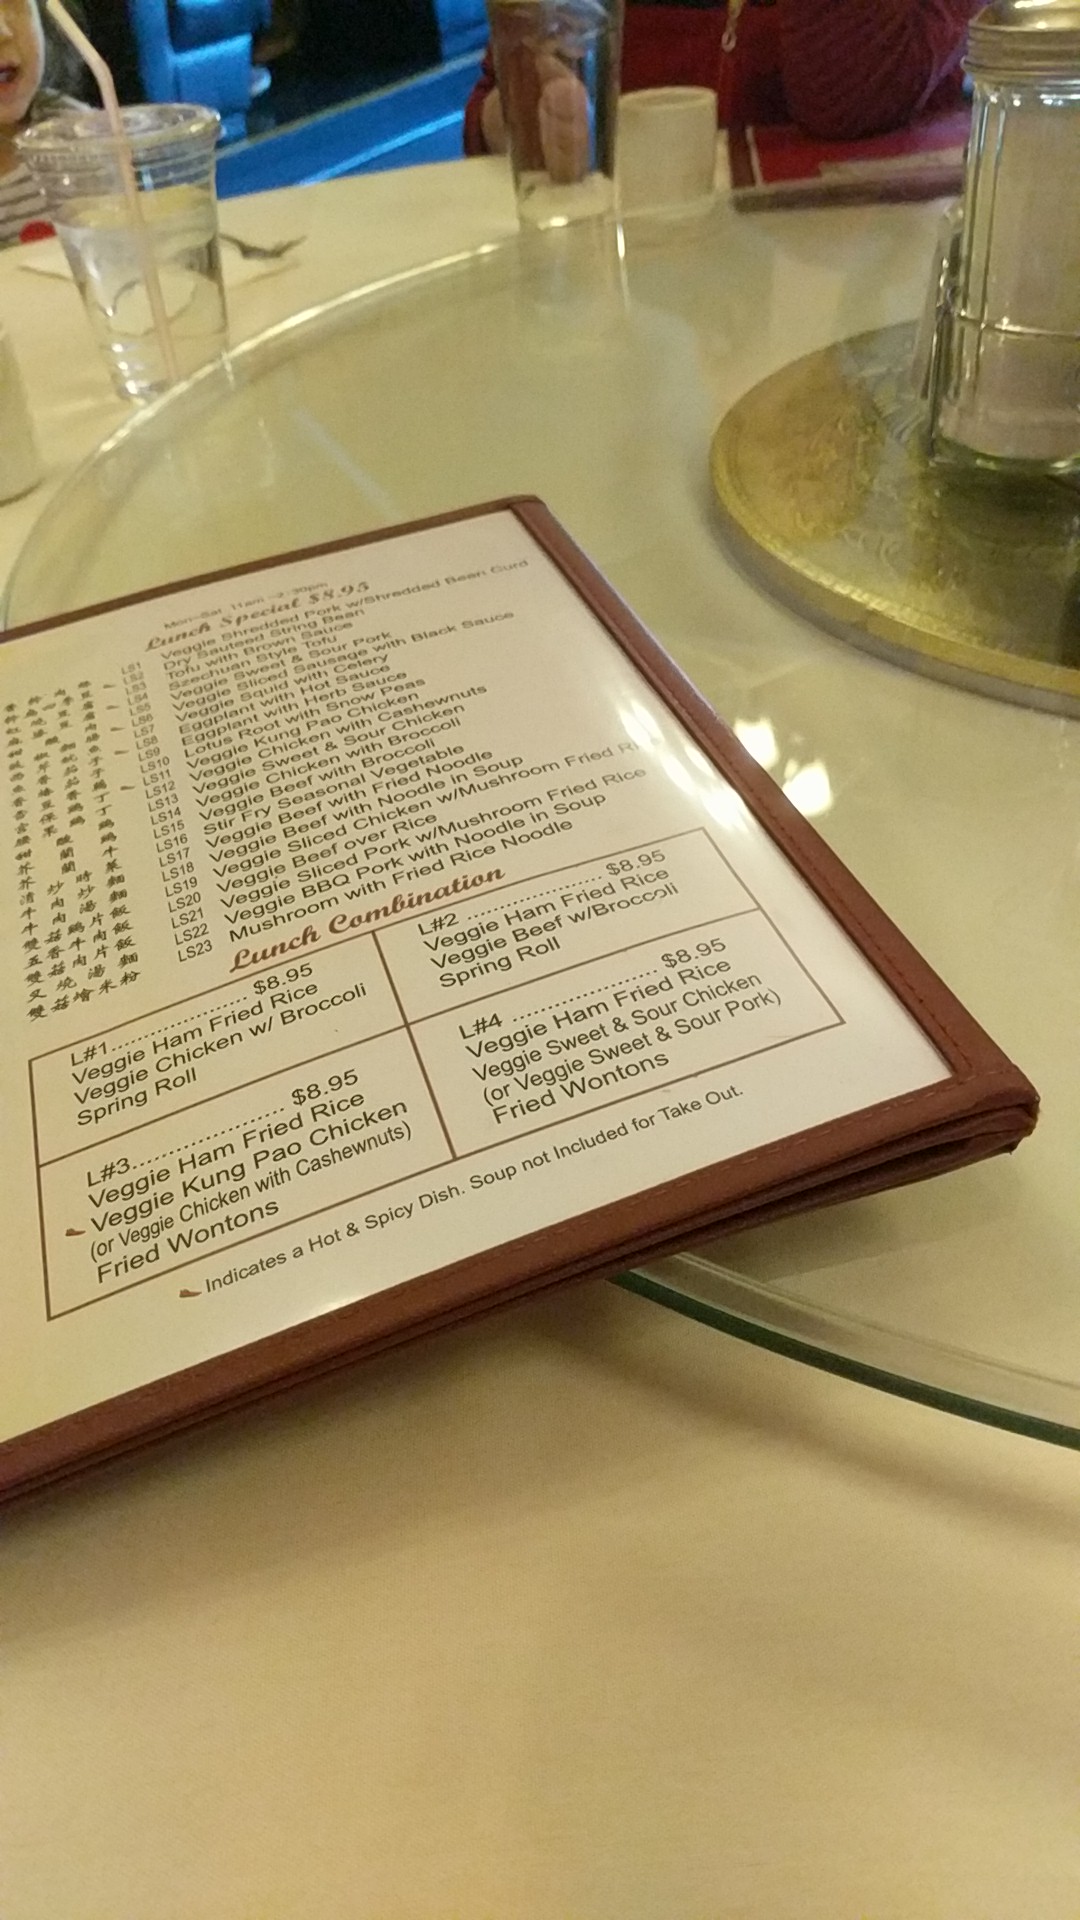 Mon-Sat 11am -2:30pm
Lunch Special $8.95
LS1 Veggie Shredded Pork w/Shredded Bean Curd
LS2 Dry Sauteed String Bean
LS3 Tofu with Brown Sauce
LS4 Szechuan Style Tofu
LS5 Veggie Sweet & Sour Pork
LS6 Veggie Sliced Sausage with Black Sauce
LS7 Veggie Squid with Celery
LS8 Eggplant with Hot Sauce
LS9 Eggplant with Herb Sauce
LS10 Lotus Root with Snow Peas
LS11 Veggie Kung Pao Chicken
LS12 Veggie Chicken with Cashewnuts
LS13 Veggie Sweet & Sour Chicken
LS14 Veggie Chicken with Broccoli
LS15 Veggie Beef with Broccoli
清炒時菜 LS16 Stir Fry Seasonal Vegetable
牛肉炒麵 LS17 Veggie Beef with Fried Noodle
牛肉湯麵 LS18 Veggie Beef with Noodle in Soup
雙菇鷄片飯 LS19 Veggie Sliced Chicken w/Mushroom Fried
五香牛肉飯 LS20 Veggie Beef over Rice
雙菇肉片飯 LS21 Veggie Sliced Pork w/Mushroom Fried Rice
叉燒湯麵 LS22 Veggie BBQ Pork with Noodle in Soup
雙菇燴米粉 LS23 Mushroom with Fried Rice Noodle
Lunch Combination
L#1........................ $8.95
Veggie Ham Fried Rice
Veggie Chicken w/ Broccoli
Spring Roll
L#2 ........................ $8.95
Veggie Ham Fried Rice
Veggie Beef w/Broccoli
Spring Roll
L#3........................ $8.95
Veggie Ham Fried Rice
Veggie Kung Pao Chicken
(or Veggie Chicken with Cashewnuts)
Fried Wontons
L#4 ........................ $8.95
Veggie Ham Fried Rice
Veggie Sweet & Sour Chicken
(or Veggie Sweet & Sour Pork)
Fried Wontons
Indicates a Hot & Spicy Dish. Soup not Included for Take Out.